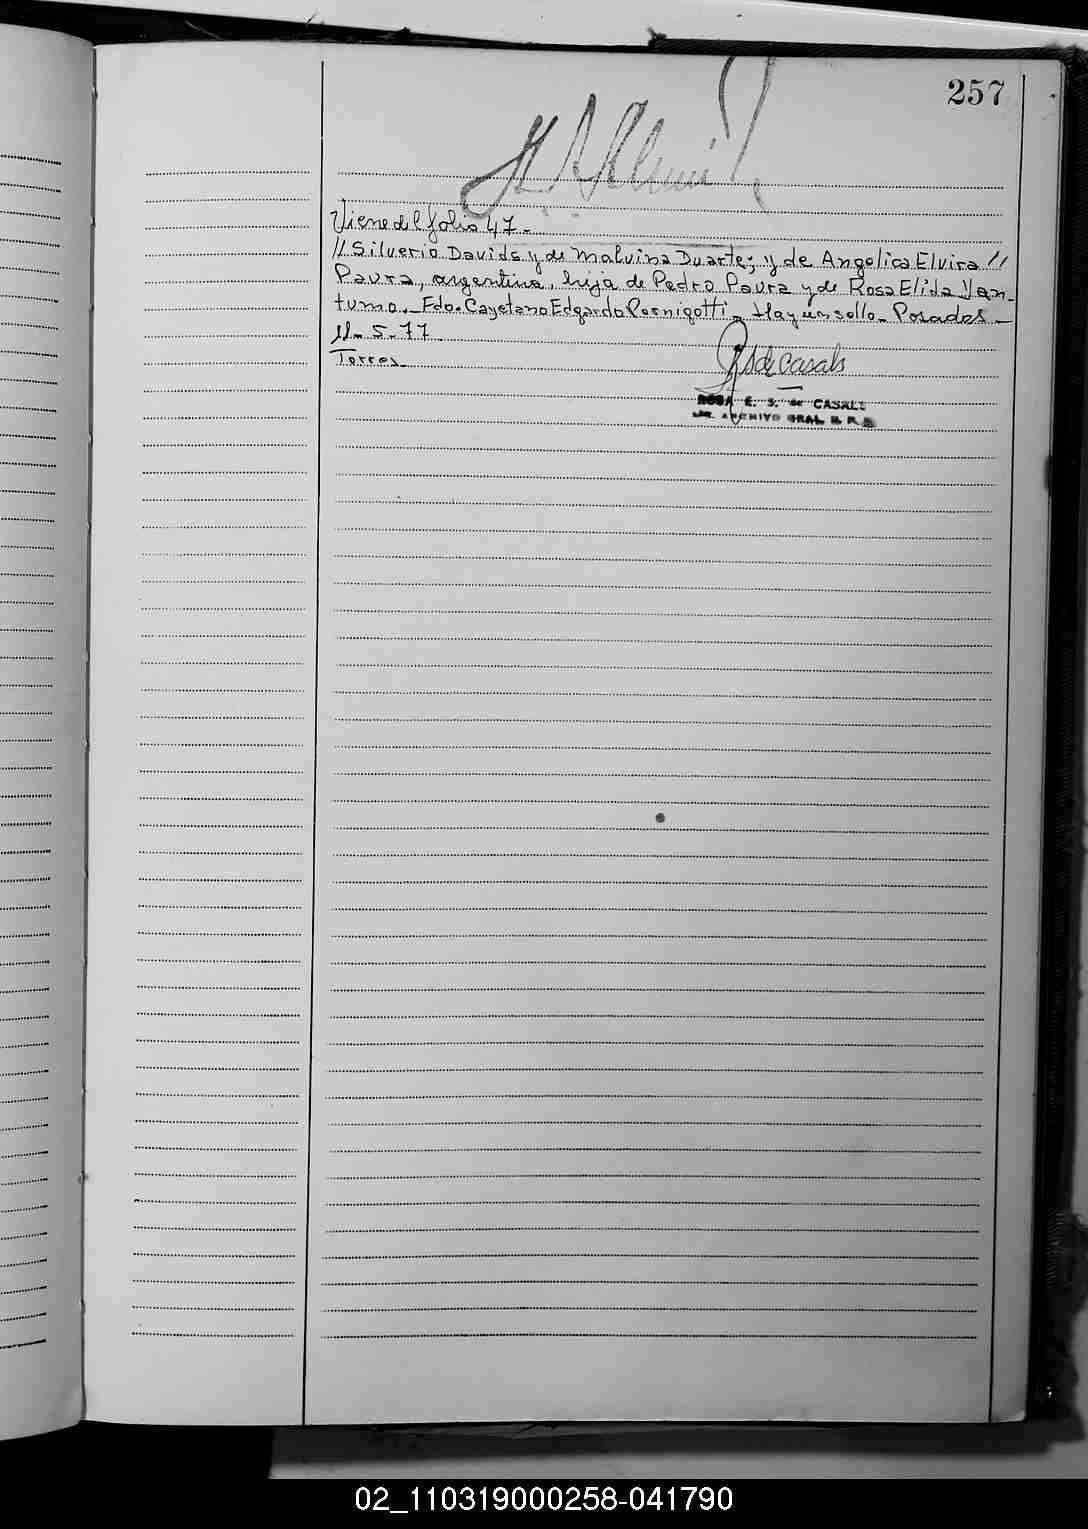 257
Viene del folio 47.-
//Silverio Davids y de Malvina Duarte; y de Angelica Elvira //
Pavra, argentina, hija de Pedro Pavra y de Rosa Elida
tumo.- Fdo. Cayetano Edgardo Pornigotti - Hay un sello - Posadas -
11-5-77
Torres-
de Casals
ROSA E. S. de CASALS
ARCHIVO GRAL. R. P.
02_110319000258-041790